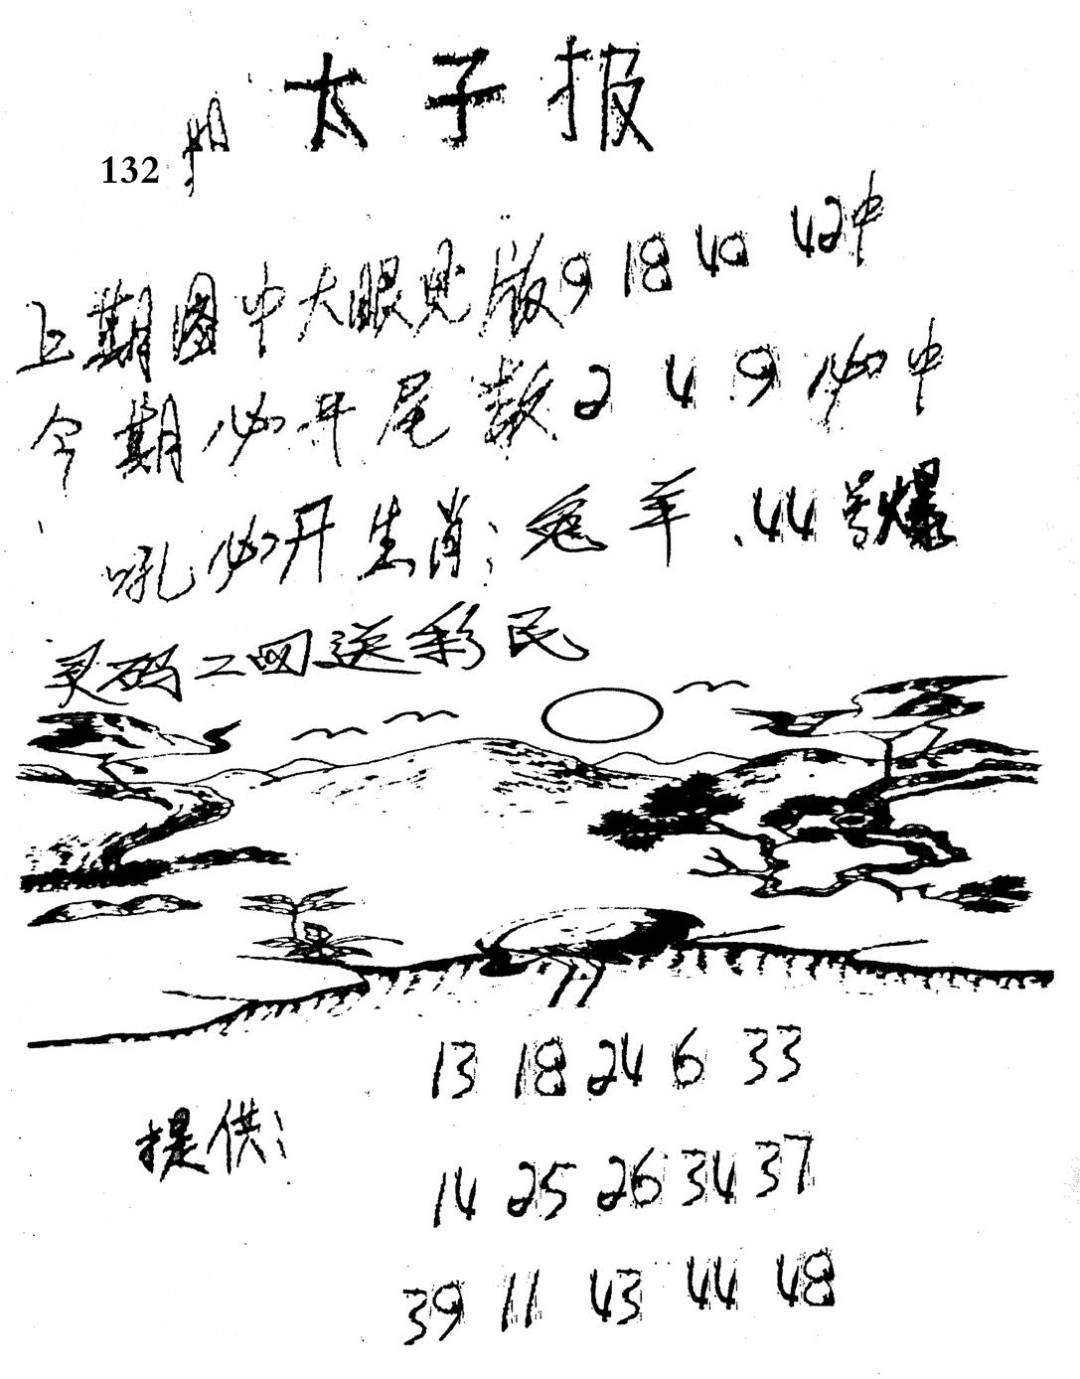 太子报
132期
上期图中大眼见版9 18 40 42中
今期必开尾数2 4 9必中
吼必开生肖:兔羊.44号爆
灵码二四送彩民
13 18 24 6 33
提供:
14 25 26 34 37
39 11 43 44 48